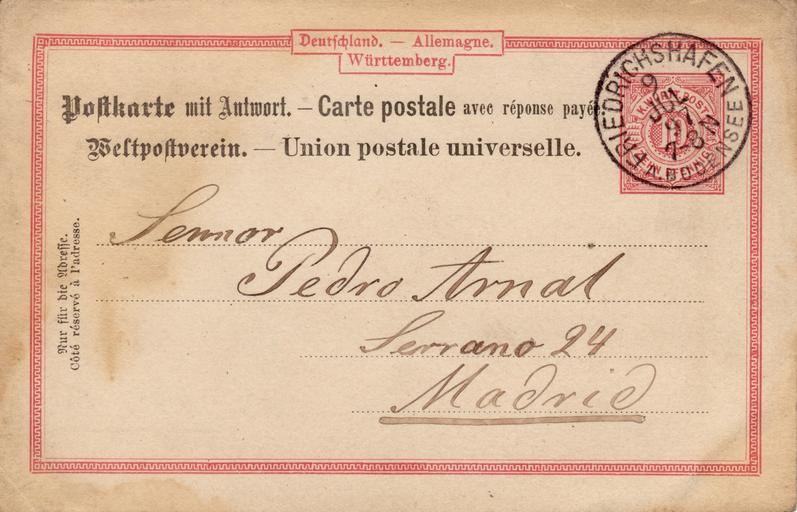 Deutschland. — Allemagne.
Württemberg.
Postkarte mit Antwort. — Carte postale avec réponse payée
Weltpostverein. — Union postale universelle.
FRIEDRICHSHAFEN
9
JUL
97
7-8 N
A. BODENSEE
Nur für die Adresse.
Côté réservé à l'adresse.
Sennor
Pedro Arnal
Serrano 24
Madrid